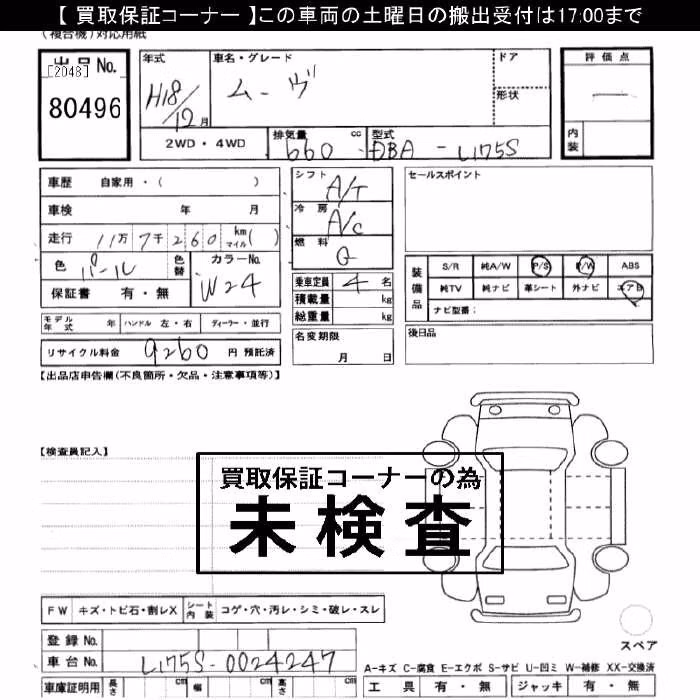 【 買取保証コーナー 】この車両の土曜日の搬出受付は17:00まで
(複合機)対応用紙
出品 No.
[2048]
80496
年式
H18/12月
車名・グレード
ムーヴ
ドア
形状
評価点
内装
2WD・4WD
排気量 cc
660
型式
DBA-L175S
車歴 自家用・( )
車検 年 月
走行 11万7千260 km マイル( )
色 パール 色替
カラーNo. W24
保証書 有・無
シフト A/T
冷房 A/C
燃料 G
乗車定員 4 名
積載量 kg
総重量 kg
セールスポイント
装備品
S/R 純A/W P/S P/W ABS
純TV 純ナビ 革シート 外ナビ エアB
ナビ型番:
モデル年式 年 ハンドル 左・右 ディーラー・並行
名変期限
月 日
後日品
リサイクル料金 9260 円 預託済
【出品店申告欄(不良箇所・欠品・注意事項等)】
【検査員記入】
買取保証コーナーの為
未検査
FW キズ・トビ石・割レX シート内装 コゲ・穴・汚レ・シミ・破レ・スレ
登録 No.
車台 No. L175S-0024247
車庫証明用 長さ cm 幅 cm 高さ cm
スペア
A-キズ C-腐食 E-エクボ S-サビ U-凹ミ W-補修 XX-交換済
工具 有・無 ジャッキ 有・無